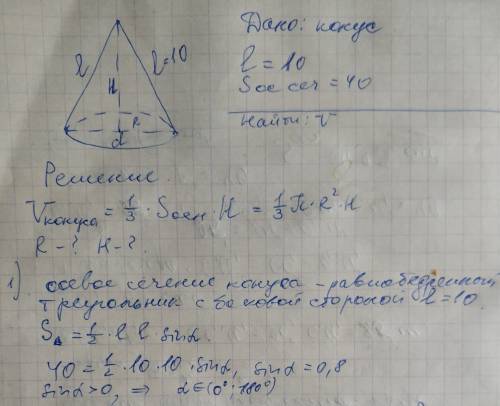 Дано: конус
l = 10
Sос сеч = 40
Найти: V
l
l=10
H
R
d
Решение.
Vконуса = 1/3 · Sосн · H = 1/3 π · R² · H
R - ? H - ?
1) осевое сечение конуса - равнобедренный
треугольник с боковой стороной l = 10.
S△ = 1/2 · l · l · sinα.
40 = 1/2 · 10 · 10 · sinα, sinα = 0,8
sinα > 0, ⇒ α ∈ (0°; 180°)